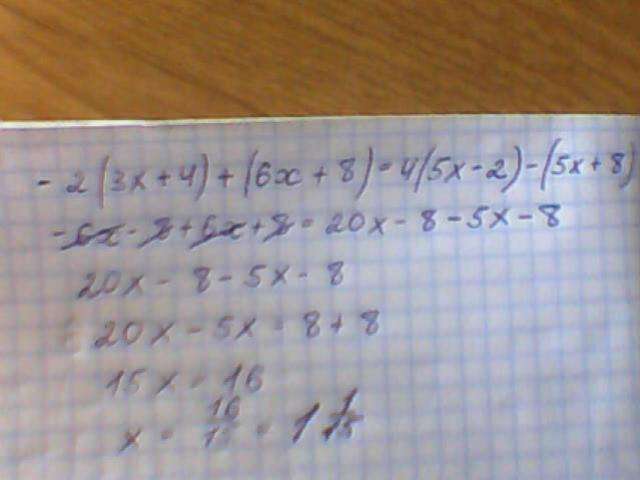 - 2(3x+4)+(6x+8)=4(5x-2)-(5x+8)
-6x-8+6x+8=20x-8-5x-8
20x-8-5x-8
20x-5x=8+8
15x=16
x=16/15=1 1/15